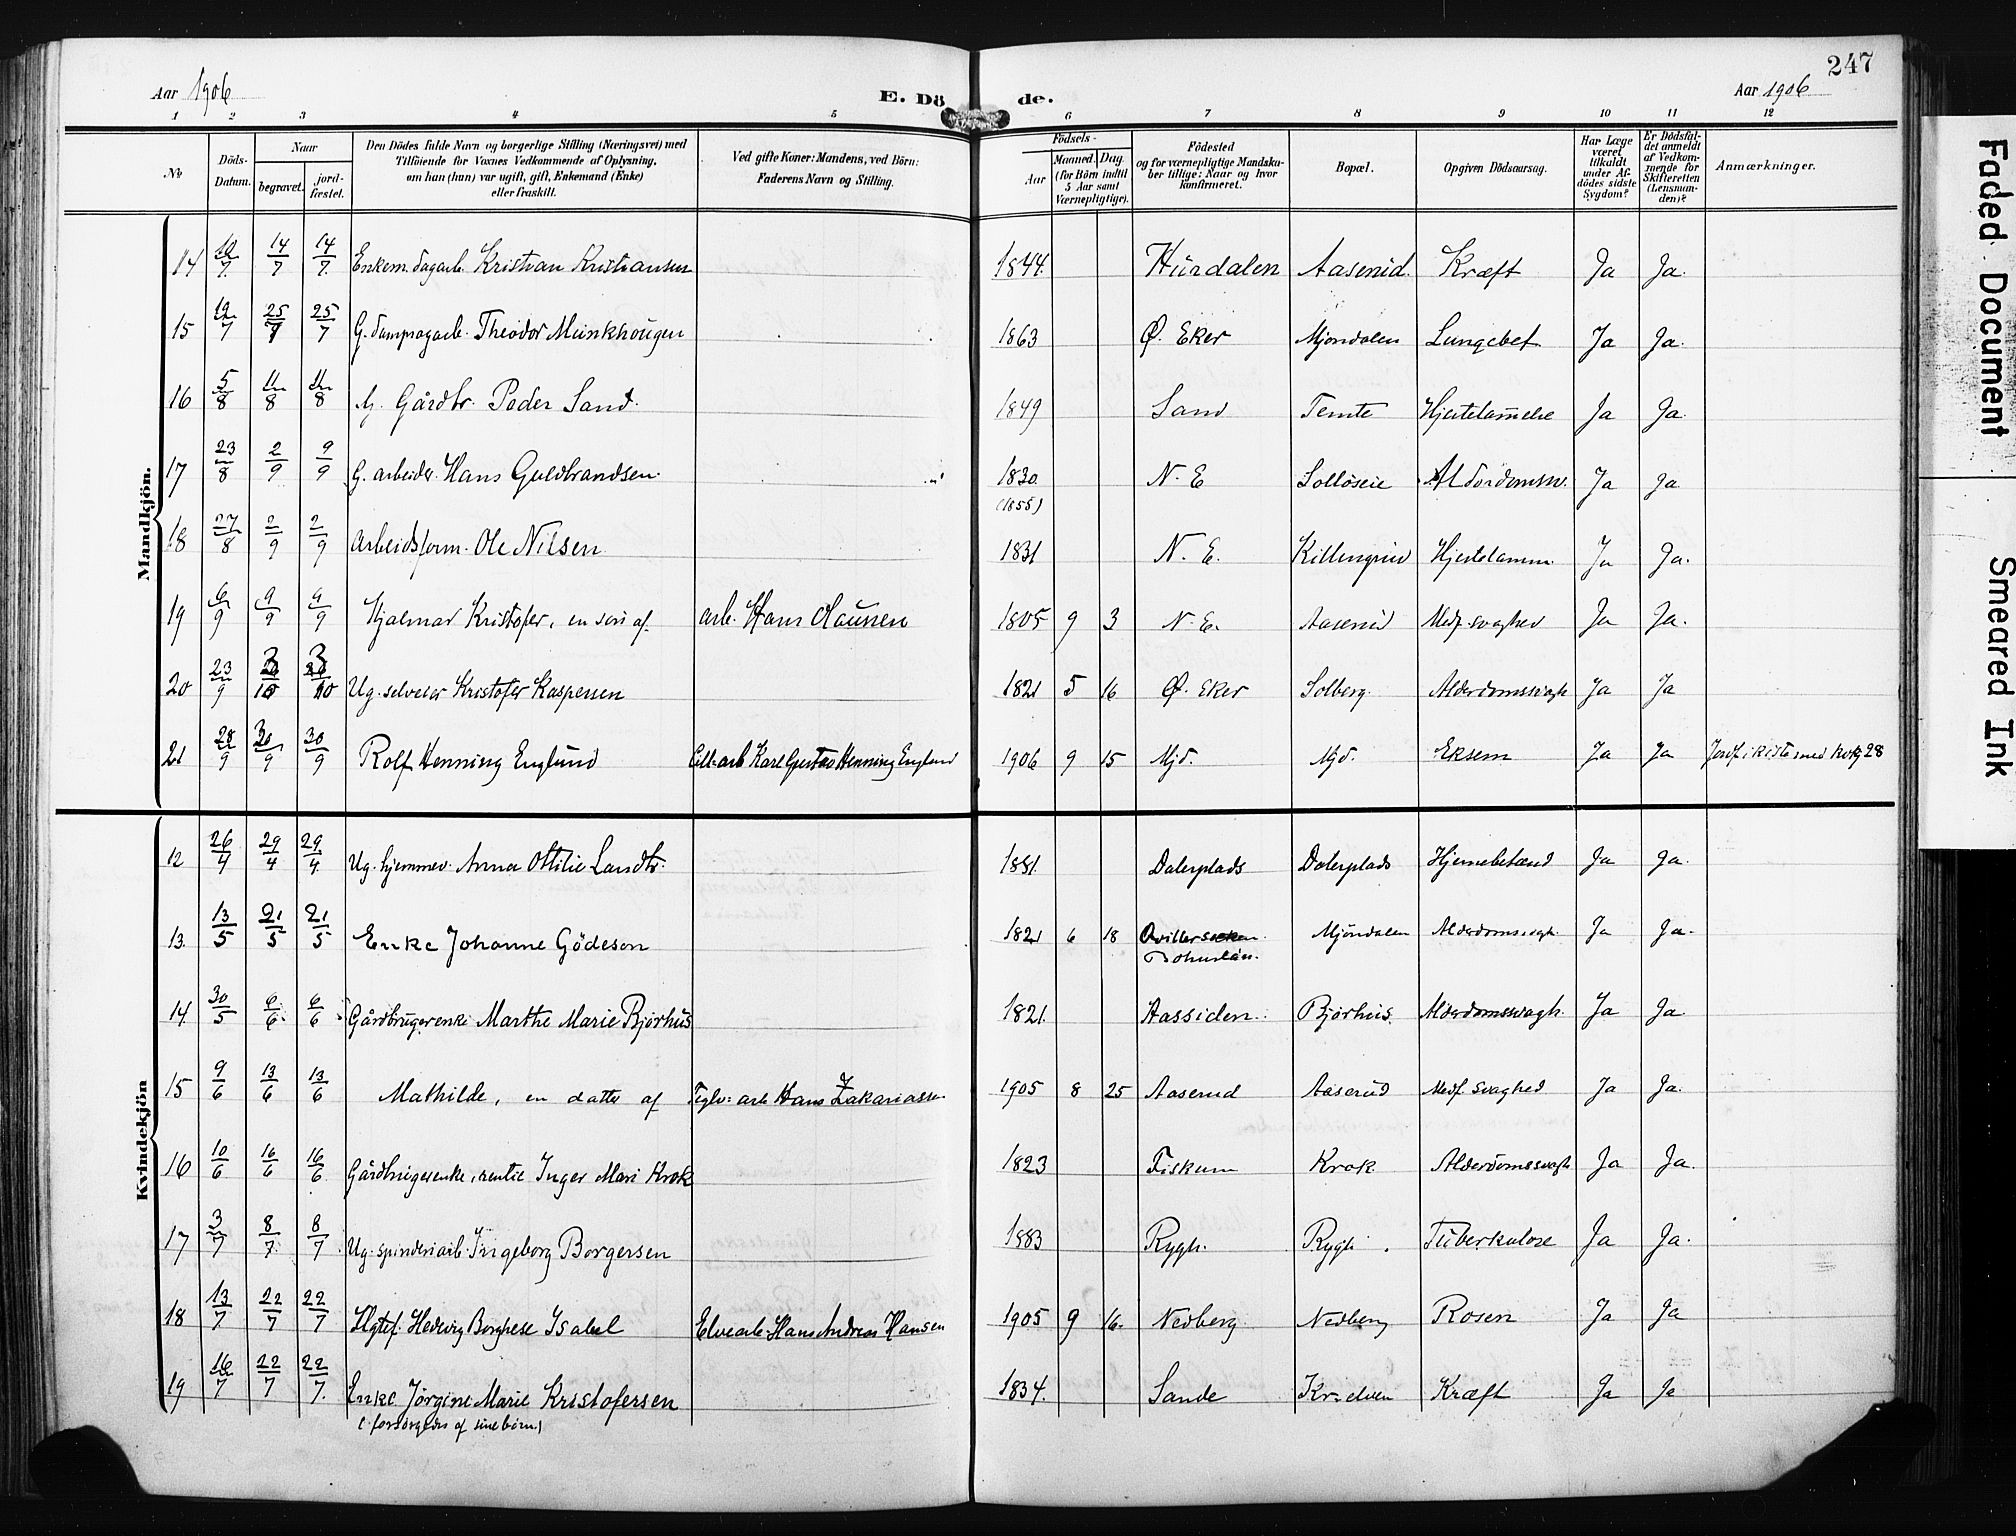 247
Aar 1906
E. Dö de.
Aar 1906
1 2 3 4 5 6 7 8 9 10 11 12
No
Döds-Datum.
Naar
begravet.
jord-fæstet.
Den Dödes fulde Navn og borgerlige Stilling (Næringsvei) med
Tilföiende for Voxnes Vedkommende af Oplysning,
om han (hun) var ugift, gift, Enkemand (Enke)
eller fraskilt.
Ved gifte Koner: Mandens, ved Börn:
Faderens Navn og Stilling.
Födsels-
Aar
Maaned. Dag.
(for Börn indtil
5 Aar samt
Værnepligtige).
Födested
og for værnepligtige Mandska-
ber tillige: Naar og hvor
konfirmeret.
Bopæl.
Opgiven Dödsaarsag.
Har Læge
været
tilkaldt
under Af-
dödes sidste
Sygdom?
Er Dödsfal-
det anmeldt
af Vedkom-
mende for
Skifteretten
(Lensman-
den)?
Anmærkninger.
Mandkjön.
14 10/7 14/7 14/7 Enkem. dagarb. Kristian Kristiansen 1844. Hurdalen Aaserud. Kræft Ja Ja.
15 19/7 25/7 25/7 G. dampsagarb. Theodor Munkhougen 1863 Ø. Eker Mjøndalen Lungebet Ja Ja.
16 5/8 11/8 11/8 G. Gårdbr. Peder Sand. 1849 Sand Temte Hjertelammelse Ja Ja.
17 23/8 2/9 9/9 G. arbeider Hans Guldbrandsen 1830 (1855) N. E Solløseie Alderdomssv. Ja Ja
18 27/8 2/9 2/9 Arbeidsform. Ole Nilsen 1831 N. E. Killingrud Hjertelamm. Ja Ja.
19 6/9 9/9 9/9 Hjalmar Kristofer, en søn af arb. Hans Olaussen 1805 9 3 N. E. Aaserud Medf. svaghed Ja Ja.
20 23/9 3/10 3/10 Ug. selveier Kristofer Kaspersen 1821 5 16 Ø. Eker Solberg. Alderdomssvagh. Ja Ja
21 28/9 30/9 30/9 Rolf Henning Englund Cell. arb Karl Gustav Henning Englund 1906 9 15 Mjd. Mjd. Eksem Ja Ja Jordf. i kiste med No 28
Kvindekjön
12 26/4 29/4 29/4. Ug. hjemmev. Anna Ottilie Landtr. 1881. Dalerplads Dalerplads Hjernebetænd Ja Ja.
13. 13/5 21/5 21/5 Enke Johanne Gödeson 1821 6 18 Qvillersocken Bohuslän. Mjöndalen Alderdomssvagh. Ja Ja.
14. 30/5 6/6. 6/6 Gårdbrugerenke Marthe Marie Bjørhus 1821. Aassiden. Bjørhus. Alderdomssvagh. Ja Ja.
15 9/6 13/6 13/6 Mathilde, en datter af Teglv. arb Hans Zakariassen 1905 8 25 Aaserud Aaserud Medf. svaghed Ja Ja.
16 10/6 16/6 16/6. Gårdbrugerenke, rentie Inger Mari Krok 1823 Fiskum Krok Alderdomssvagh Ja Ja.
17 3/7 8/7. 8/7 Ug. spinderiarb. Ingeborg Borgersen 1883 Rygh. Rygh. Tuberkulose Ja Ja.
18 13/7 22/7 22/7 Ægtef. Hedvig Borghese Isabel Elvearb. Hans Andreas Hansen 1905 9 16. Nedberg Nedberg Rosen Ja Ja
19 16/7 22/7 22/7. Enke Jørgine Marie Kristofersen 1834. Sande Kr. elven Kræft Ja Ja
(forsørgedes af sine børn)
Faded Document
Smeared Ink